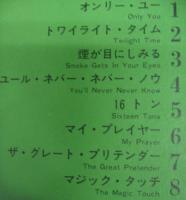 オンリー・ユー 1
Only You
トワイライト・タイム 2
Twilight Time
煙が目にしみる 3
Smoke Gets In Your Eyes
ユール・ネバー・ネバー・ノウ 4
You'll Never Never Know
16トン 5
Sixteen Tons
マイ・プレイヤー 6
My Prayer
ザ・グレート・プリテンダー 7
The Great Pretender
マジック・タッチ 8
The Magic Touch